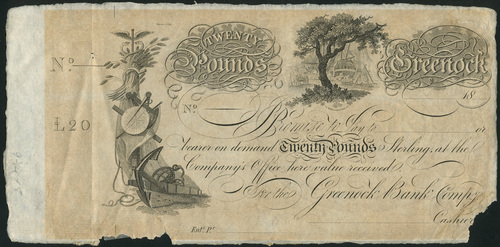 TWENTY
Pounds
Greenock
Nº
18
Nº
£20
Promise to Pay to
or
bearer on demand Twenty Pounds Sterling, at the
Company's Office here value received
For the Greenock Bank Compy
Cashier
Entd. Pr.